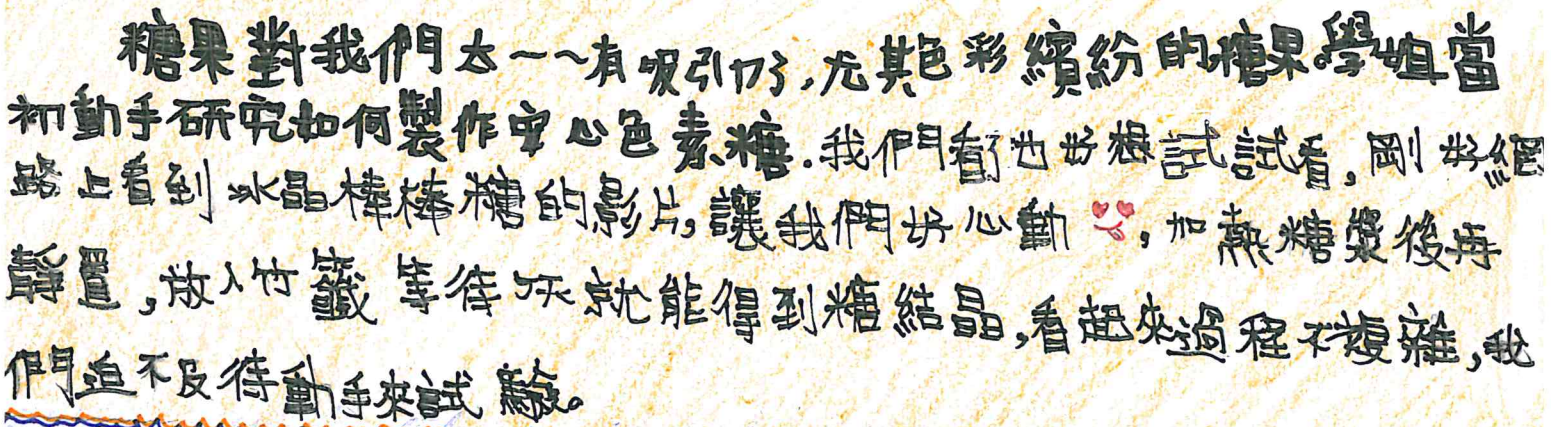 糖果對我們太~~有吸引力了,尤其色彩繽紛的糖果。學姐當
初動手研究如何製作安心色素糖.我們看了也好想試試看,剛好網
路上看到冰晶棒棒糖的影片,讓我們好心動,加熱糖漿後再
靜置,放入竹籤等待7天就能得到糖結晶,看起來過程不複雜,我
們迫不及待動手來試驗。